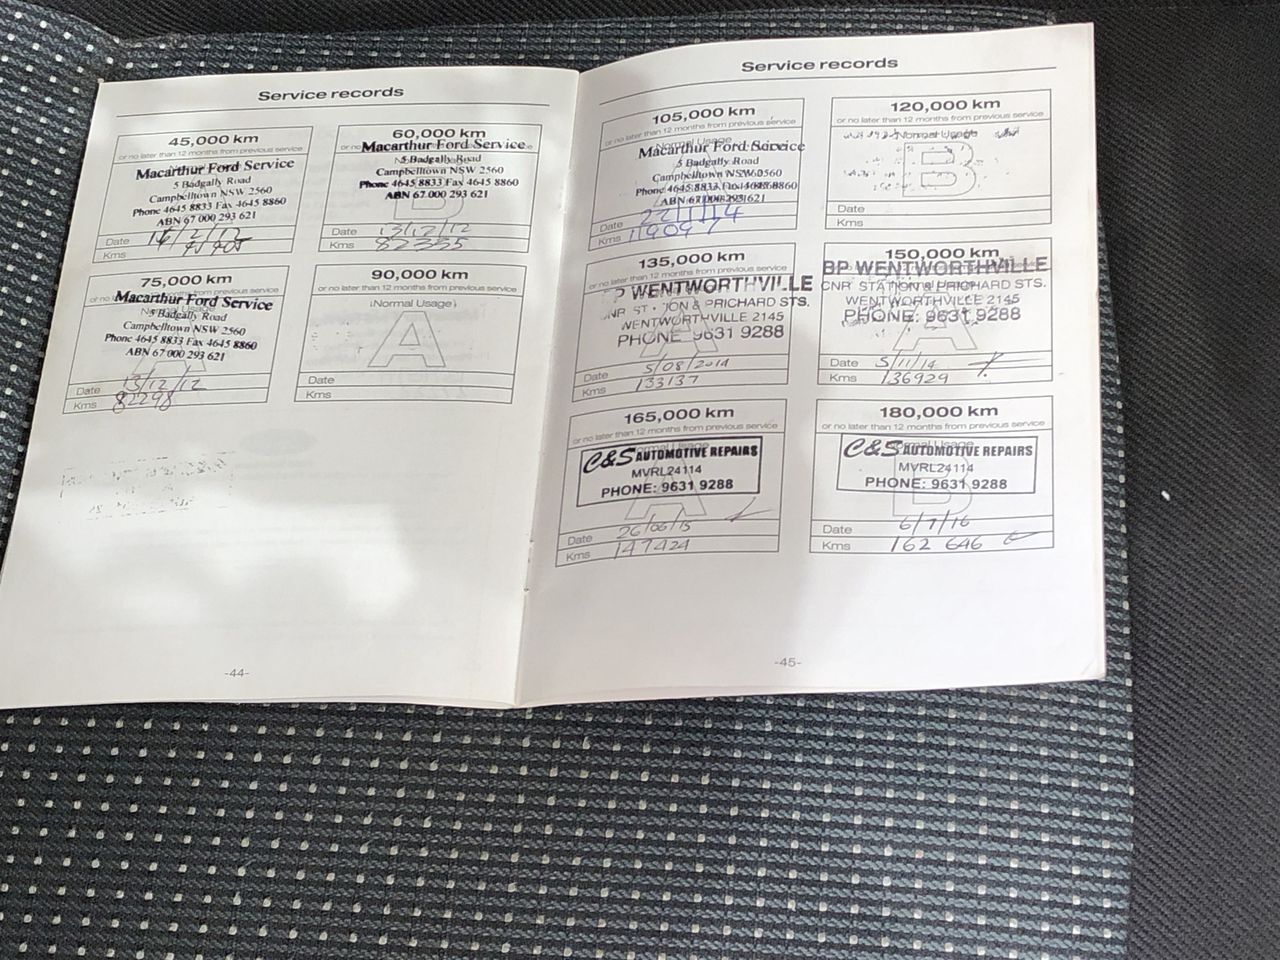 Service records
45,000 km
or no later than 12 months from previous service
Macarthur Ford Service
5 Badgally Road
Campbelltown NSW 2560
Phone 4645 8833 Fax 4645 8860
ABN 67 000 293 621
Date 14/2/12
Kms
60,000 km
or no later than 12 months from previous service
Macarthur Ford Service
5 Badgally Road
Campbelltown NSW 2560
Phone 4645 8833 Fax 4645 8860
ABN 67 000 293 621
Date 13/12/12
Kms 82355
75,000 km
or no later than 12 months from previous service
Macarthur Ford Service
5 Badgally Road
Campbelltown NSW 2560
Phone 4645 8833 Fax 4645 8860
ABN 67 000 293 621
Date 13/12/12
Kms 82298
90,000 km
(Normal Usage)
A
Date
Kms
-44-
Service records
105,000 km
or no later than 12 months from previous service
Normal Usage
Macarthur Ford Service
5 Badgally Road
Campbelltown NSW 2560
Phone 4645 8833 Fax 4645 8860
ABN 67 000 293 621
Date 22/1/14
Kms 119097
120,000 km
or no later than 12 months from previous service
Normal Usage
B
Date
Kms
135,000 km
or no later than 12 months from previous service
P WENTWORTHVILLE
CNR STATION & PRICHARD STS.
WENTWORTHVILLE 2145
PHONE 9631 9288
Date 5/08/2014
Kms 133137
150,000 km
or no later than 12 months from previous service
BP WENTWORTHVILLE
CNR STATION & PRICHARD STS.
WENTWORTHVILLE 2145
PHONE: 9631 9288
A
Date 5/11/14
Kms 136929
165,000 km
or no later than 12 months from previous service
Normal Usage
C&S AUTOMOTIVE REPAIRS
MVRL24114
PHONE: 9631 9288
A
Date 26/06/15
Kms 147424
180,000 km
or no later than 12 months from previous service
Normal Usage
C&S AUTOMOTIVE REPAIRS
MVRL24114
PHONE: 9631 9288
B
Date 6/7/16
Kms 162 646
-45-